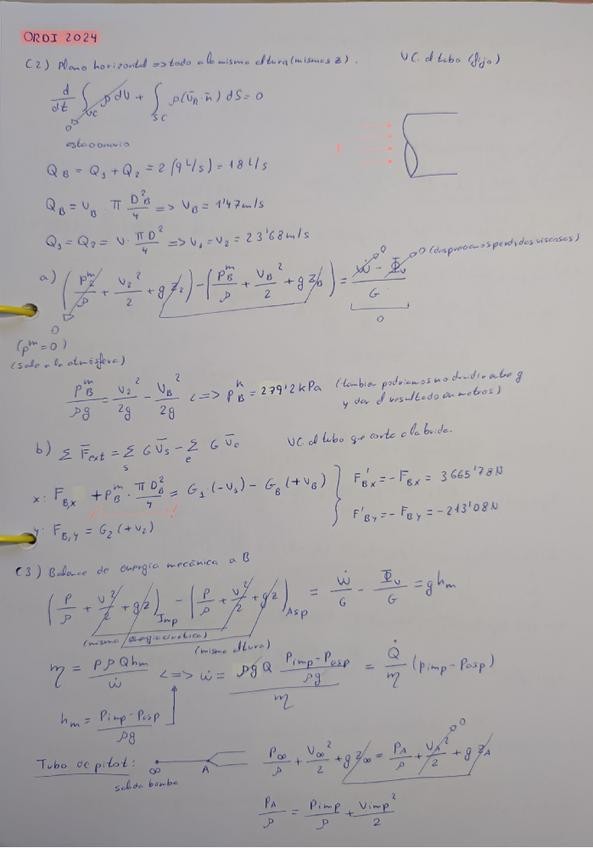 ORDI 2024
C2) Plano horizontal => todo a la misma altura (mismas z). VC. el tubo (fijo)
d/dt ∫_VC ρ dV + ∫_SC ρ(v̄_A · n̄) dS = 0
0
estacionario
Q_B = Q_1 + Q_2 = 2(9 L/s) = 18 L/s
Q_B = v_B · π D_B²/4 => v_B = 1'47 m/s
Q_1 = Q_2 = v · πD²/4 => v_1 = v_2 = 23'68 m/s
a) (P_2^m/ρ + v_2²/2 + g z_2) - (P_B^m/ρ + v_B²/2 + g z_B) = (Ẇ - Φ_v)/G 0 0 (despreciamos perdidas viscosas)
0 0
(p^m = 0)
(sale a la atmósfera)
P_B^m/ρg = v_2²/2g - v_B²/2g <=> P_B^m = 279'2 kPa (tambien podriamos no dividir entre g
y dar el resultado en metros)
b) Σ F̄_ext = Σ_s G v̄_s - Σ_e G v̄_e VC. el tubo que corte a la brida.
x: F_B,x + P_B^m · πD_B²/4 = G_1(-v_1) - G_B(+v_B) F'_Bx = -F_Bx = 3665'78 N
y: F_B,y = G_2(+v_2) F'_By = -F_By = -213'08 N
C3) Balance de energia mecánica a B
(P/ρ + v²/2 + gz)_Imp - (P/ρ + v²/2 + gz)_Asp = Ẇ/G - Φ_v/G = g h_m
(misma energia cinetica) (misma altura)
η = ρgQh_m/Ẇ <=> Ẇ = ρgQ (P_imp - P_asp)/ρg / η = Q̇/η (P_imp - P_asp)
h_m = (P_imp - P_asp)/ρg
Tubo de pitot: ∞ A P_∞/ρ + v_∞²/2 + g z_∞ = P_A/ρ + v_A²/2 + g z_A 0
salida bomba
P_A/ρ = P_imp/ρ + v_imp²/2